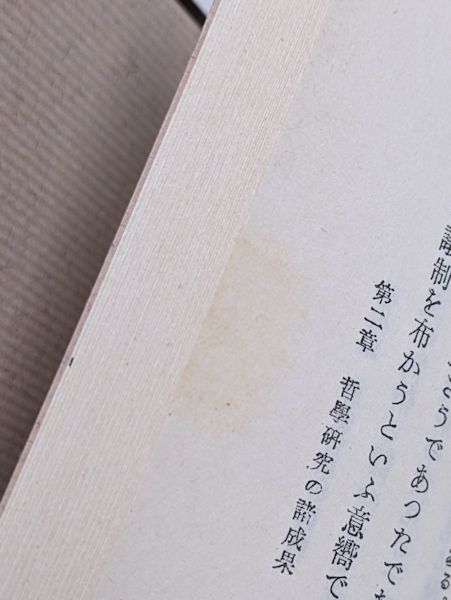 うであつたで
制を布かうといふ意嚮で
第二章 哲學研究の諸成果